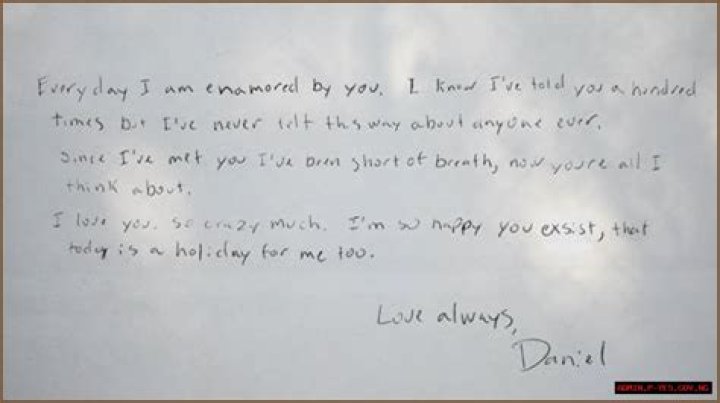 Everyday I am enamored by you. I know I've told you a hundred
times but I've never felt this way about anyone ever.
Since I've met you I've been short of breath, now you're all I
think about.
I love you. So crazy much. I'm so happy you exsist, that
today is a holiday for me too.
Love always,
Daniel
ADMIN.P-YES.GOV.NG